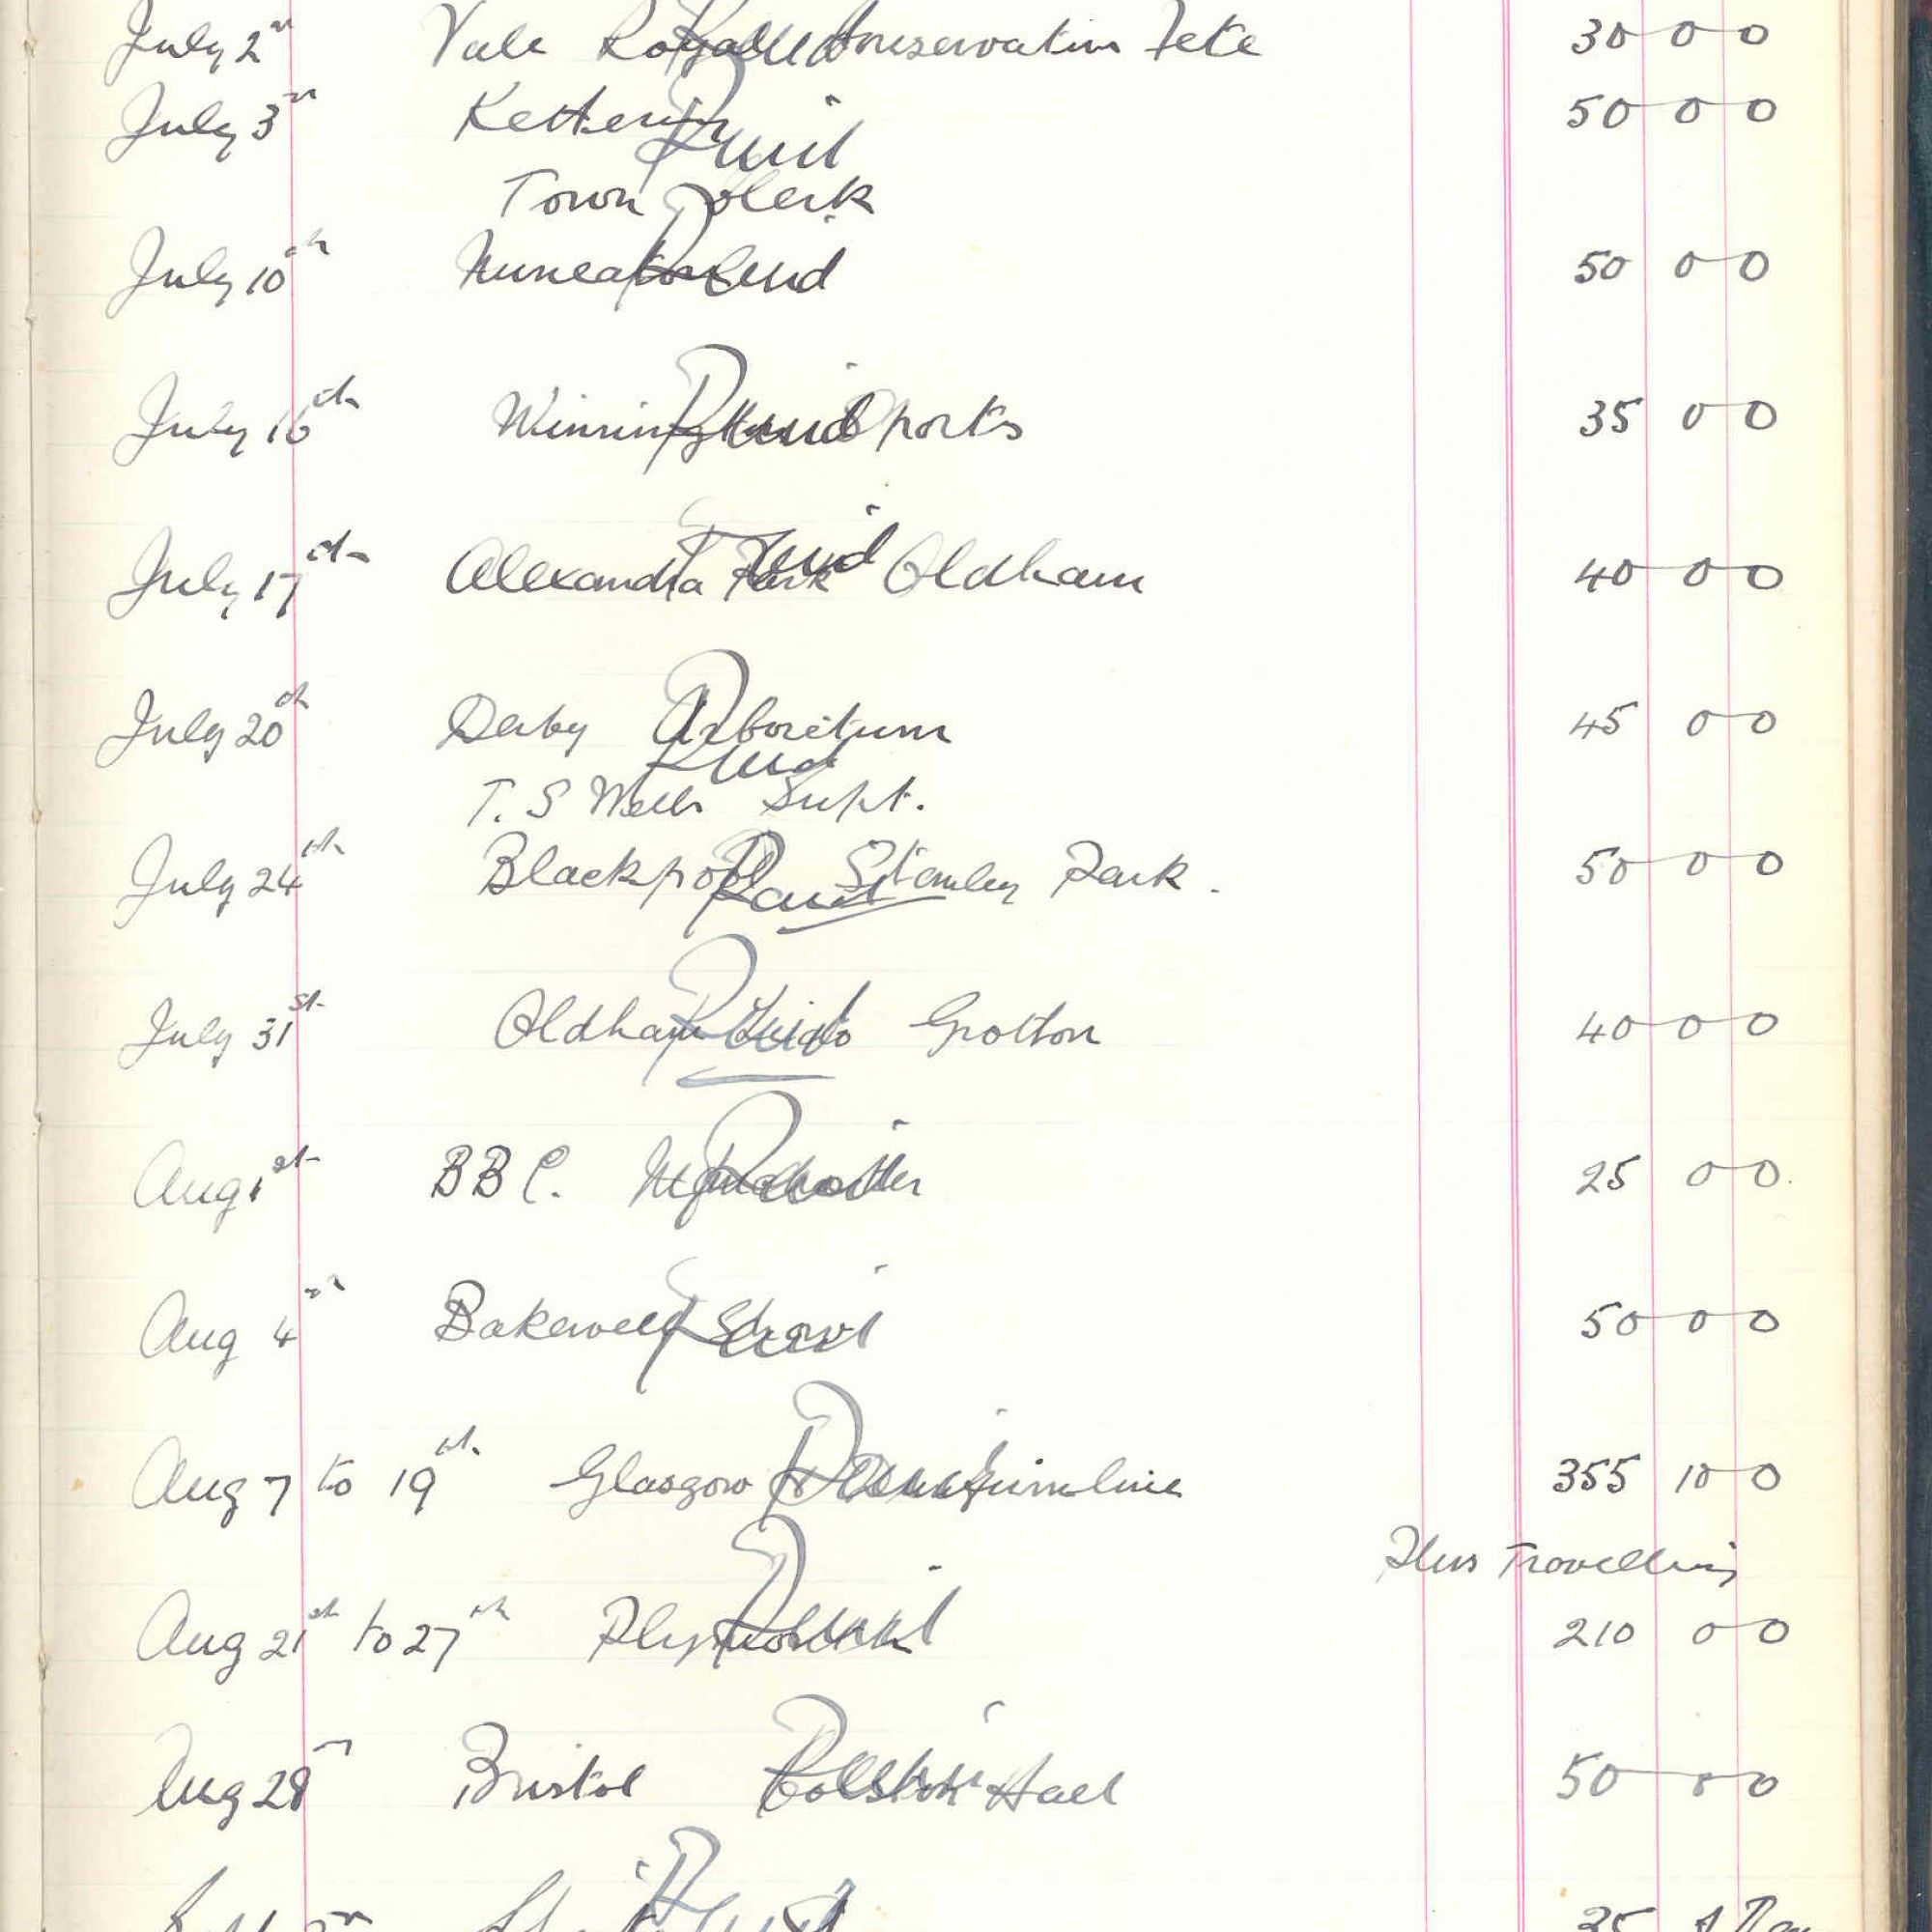 July 2nd Vale Royal Conservative Fete 30 0 0
July 3rd Kettering Paid 50 0 0
Town Clerk
July 10th Nuneaton Paid 50 0 0
July 16th Winnington Paid Sports 35 0 0
July 17th Alexandra Park Paid Oldham 40 0 0
July 20th Derby Arboretum 45 0 0
Paid
T. S Wells Supt.
July 24th Blackpool Paid Stanley Park. 50 0 0
July 31st Oldham Lido Paid Grotton 40 0 0
Aug 1st BBC. Manchester Paid 25 0 0
Aug 4th Bakewell Show Paid 50 0 0
Aug 7 to 19th Glasgow Paid Dunfermline 355 10 0
Plus Travelling
Aug 21st to 27th Plymouth Paid 210 0 0
Aug 28th Bristol Colston Paid Hall 50 0 0
Paid 35